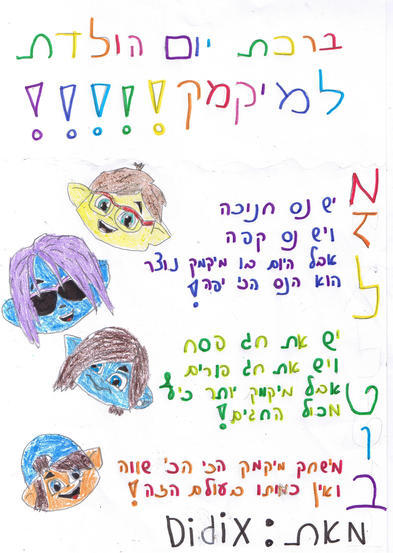 ברכת יום הולדת
למיקמק!!!!!
מזל טוב
יש נס חנוכה
ויש נס קפה
אבל היום בו מיקמק נוצר
הוא הנס הכי יפה!
יש את חג פסח
ויש את חג פורים
אבל מיקמק יותר כיף
מכול החגים!
מישחק מיקמק הכי הכי שווה
ואין כמותו בעולם הזה!
מאת: Didix